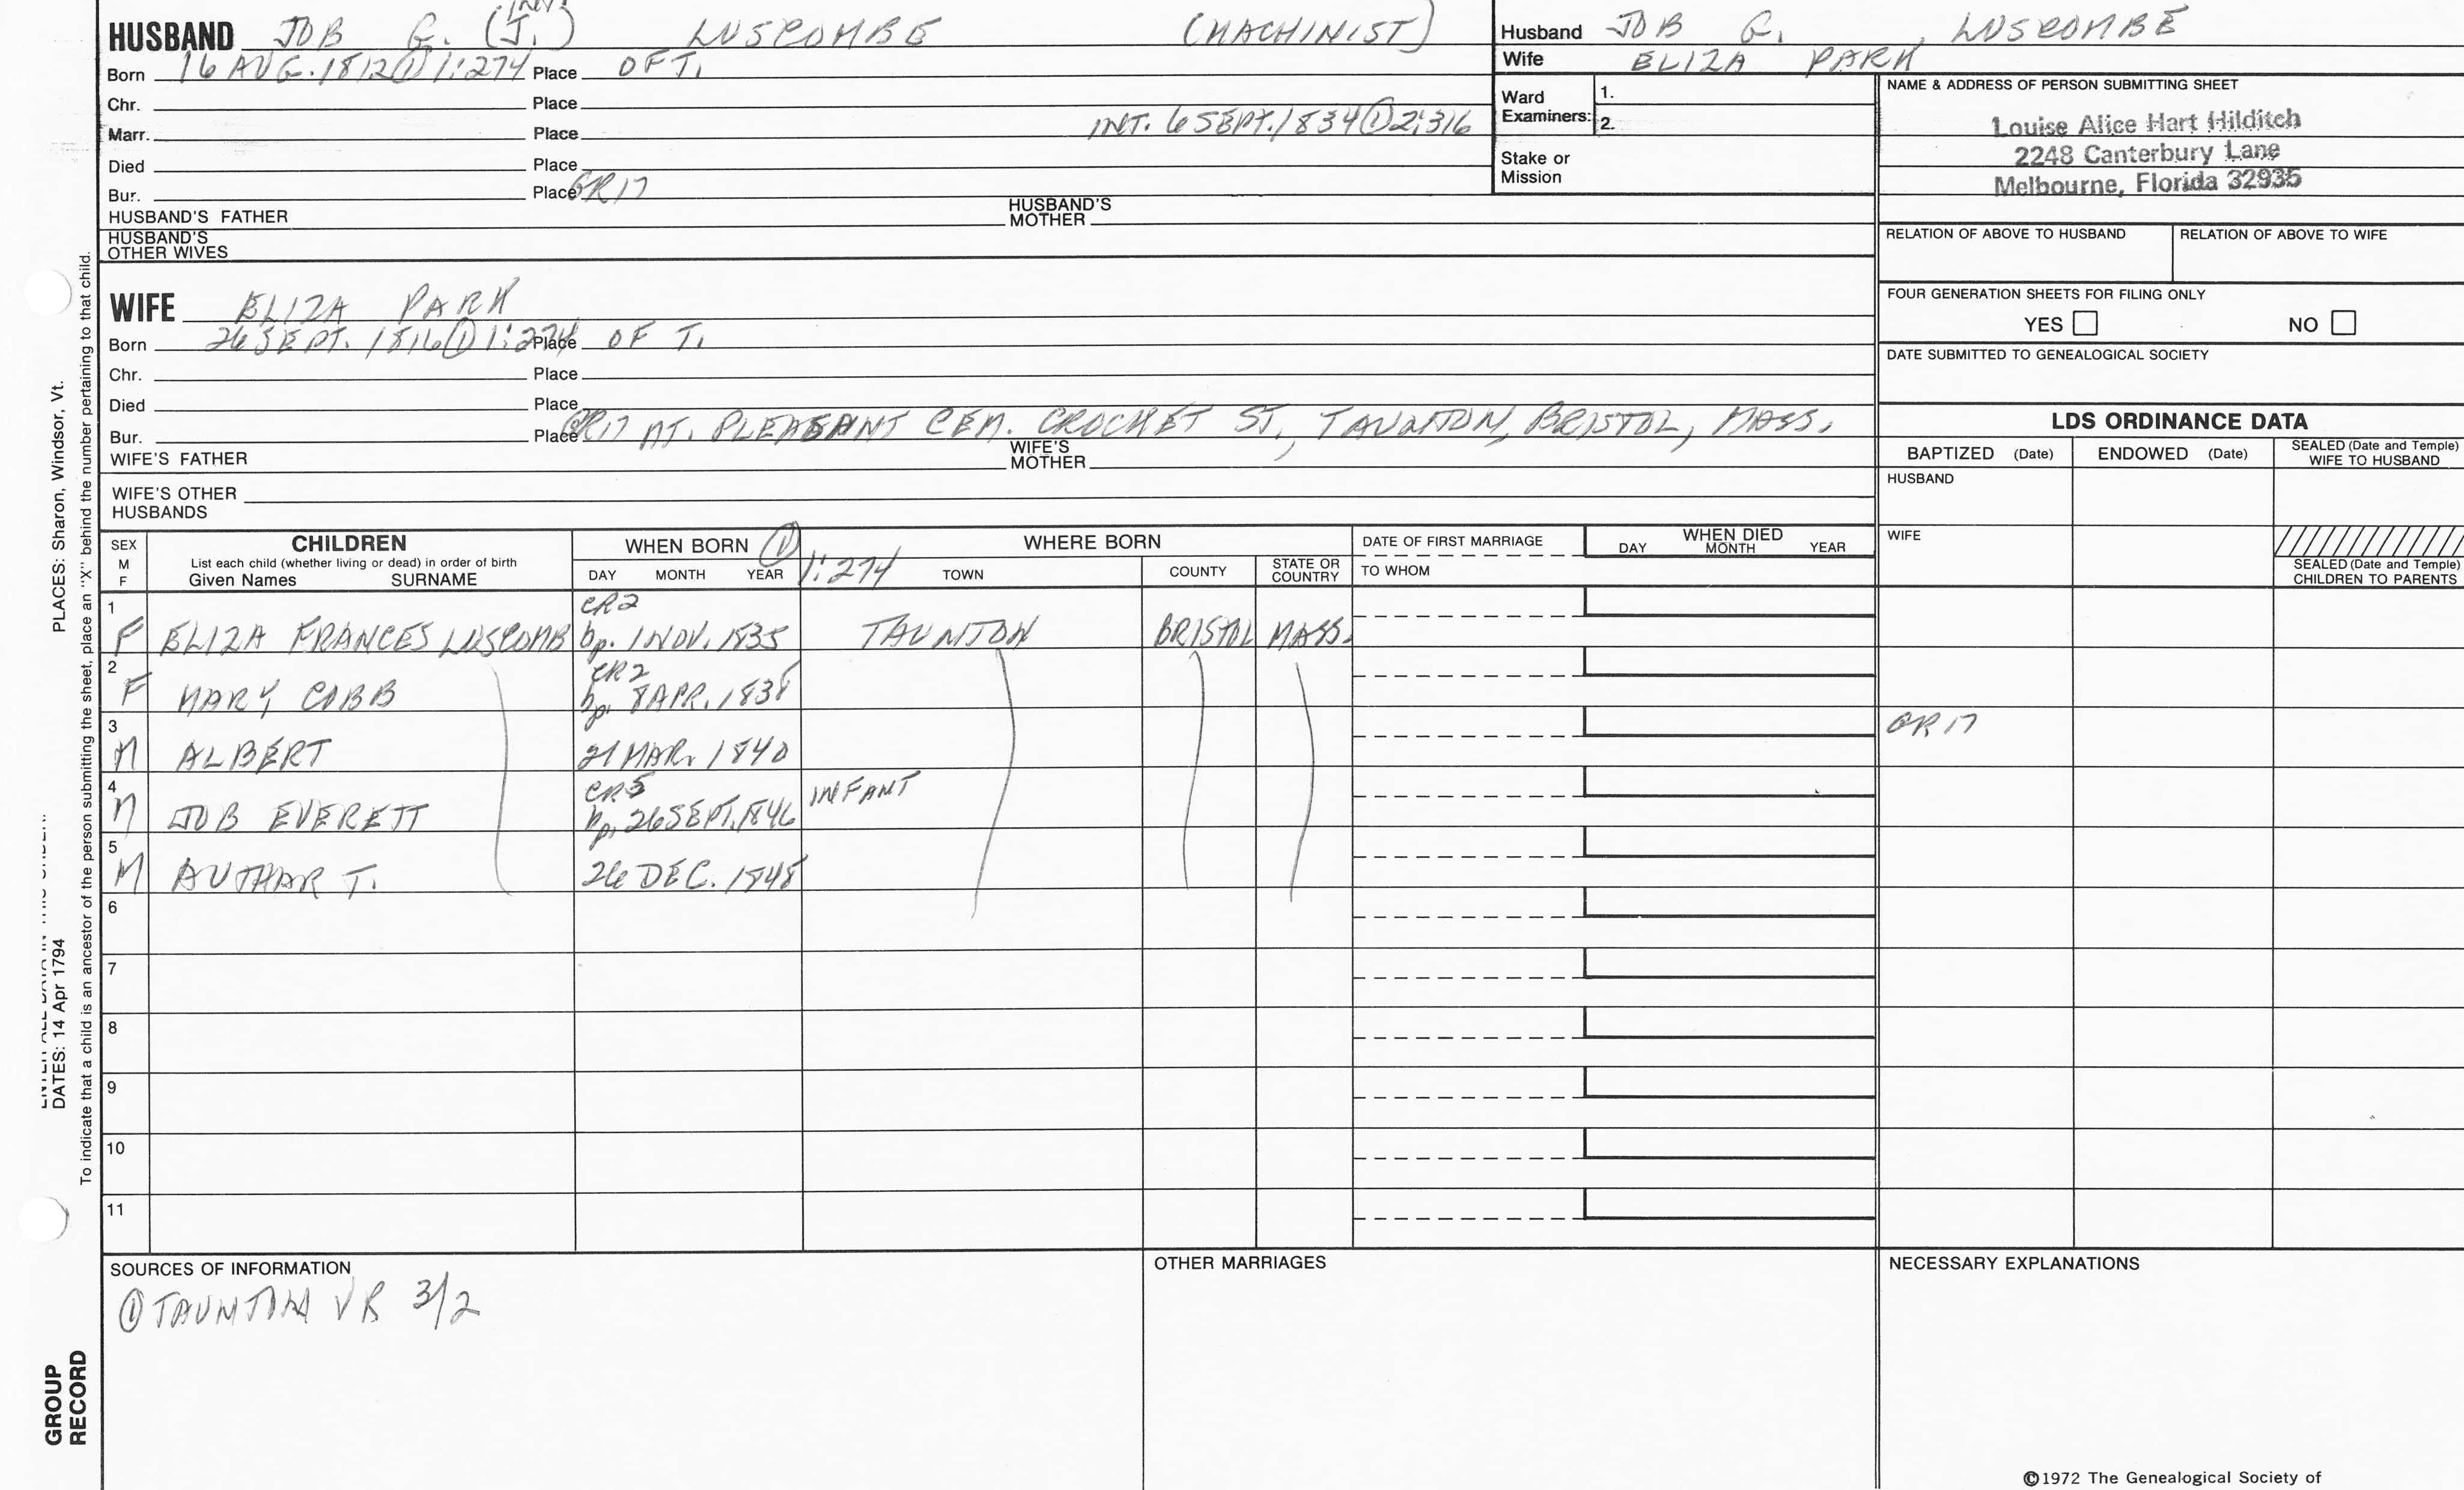 HUSBAND JOB G. (J.) LUSCOMBE (MACHINIST)
Born 16 AUG. 1812 ① 1:274 Place OF T.
Chr. Place
Marr. Place INT. 6 SEPT. 1834 ① 2:316
Died Place
Bur. Place GR17
HUSBAND'S FATHER HUSBAND'S MOTHER
HUSBAND'S OTHER WIVES
Husband JOB G. LUSCOMBE
Wife ELIZA PARK
Ward Examiners: 1.
2.
Stake or Mission
NAME & ADDRESS OF PERSON SUBMITTING SHEET
Louise Alice Hart Hilditch
2248 Canterbury Lane
Melbourne, Florida 32935
RELATION OF ABOVE TO HUSBAND RELATION OF ABOVE TO WIFE
FOUR GENERATION SHEETS FOR FILING ONLY
YES NO
DATE SUBMITTED TO GENEALOGICAL SOCIETY
WIFE ELIZA PARK
Born 26 SEPT. 1816 ① 1:274 Place OF T.
Chr. Place
Died Place
Bur. Place GR17 MT. PLEASANT CEM. CROCKET ST., TAUNTON, BRISTOL, MASS.
WIFE'S FATHER WIFE'S MOTHER
WIFE'S OTHER HUSBANDS
LDS ORDINANCE DATA
BAPTIZED (Date) ENDOWED (Date) SEALED (Date and Temple) WIFE TO HUSBAND
HUSBAND
WIFE
SEALED (Date and Temple) CHILDREN TO PARENTS
SEX M F
CHILDREN
List each child (whether living or dead) in order of birth
Given Names SURNAME
WHEN BORN ① 1:274
DAY MONTH YEAR
WHERE BORN
TOWN COUNTY STATE OR COUNTRY
DATE OF FIRST MARRIAGE
TO WHOM
WHEN DIED
DAY MONTH YEAR
1 CR2
F ELIZA FRANCES LUSCOMB bp. 1 NOV. 1835 TAUNTON BRISTOL MASS.
2 CR2
F MARY COBB bp. 8 APR. 1838
3 GR17
M ALBERT 21 MAR. 1840
4 CR5 INFANT
M JOB EVERETT bp. 26 SEPT. 1846
5
M AUTHAR T. 26 DEC. 1848
6
7
8
9
10
11
SOURCES OF INFORMATION
① TAUNTON VR 3/2
OTHER MARRIAGES
NECESSARY EXPLANATIONS
©1972 The Genealogical Society of
PLACES: Sharon, Windsor, Vt.
DATES: 14 Apr 1794
To indicate that a child is an ancestor of the person submitting the sheet, place an "X" behind the number pertaining to that child.
GROUP RECORD